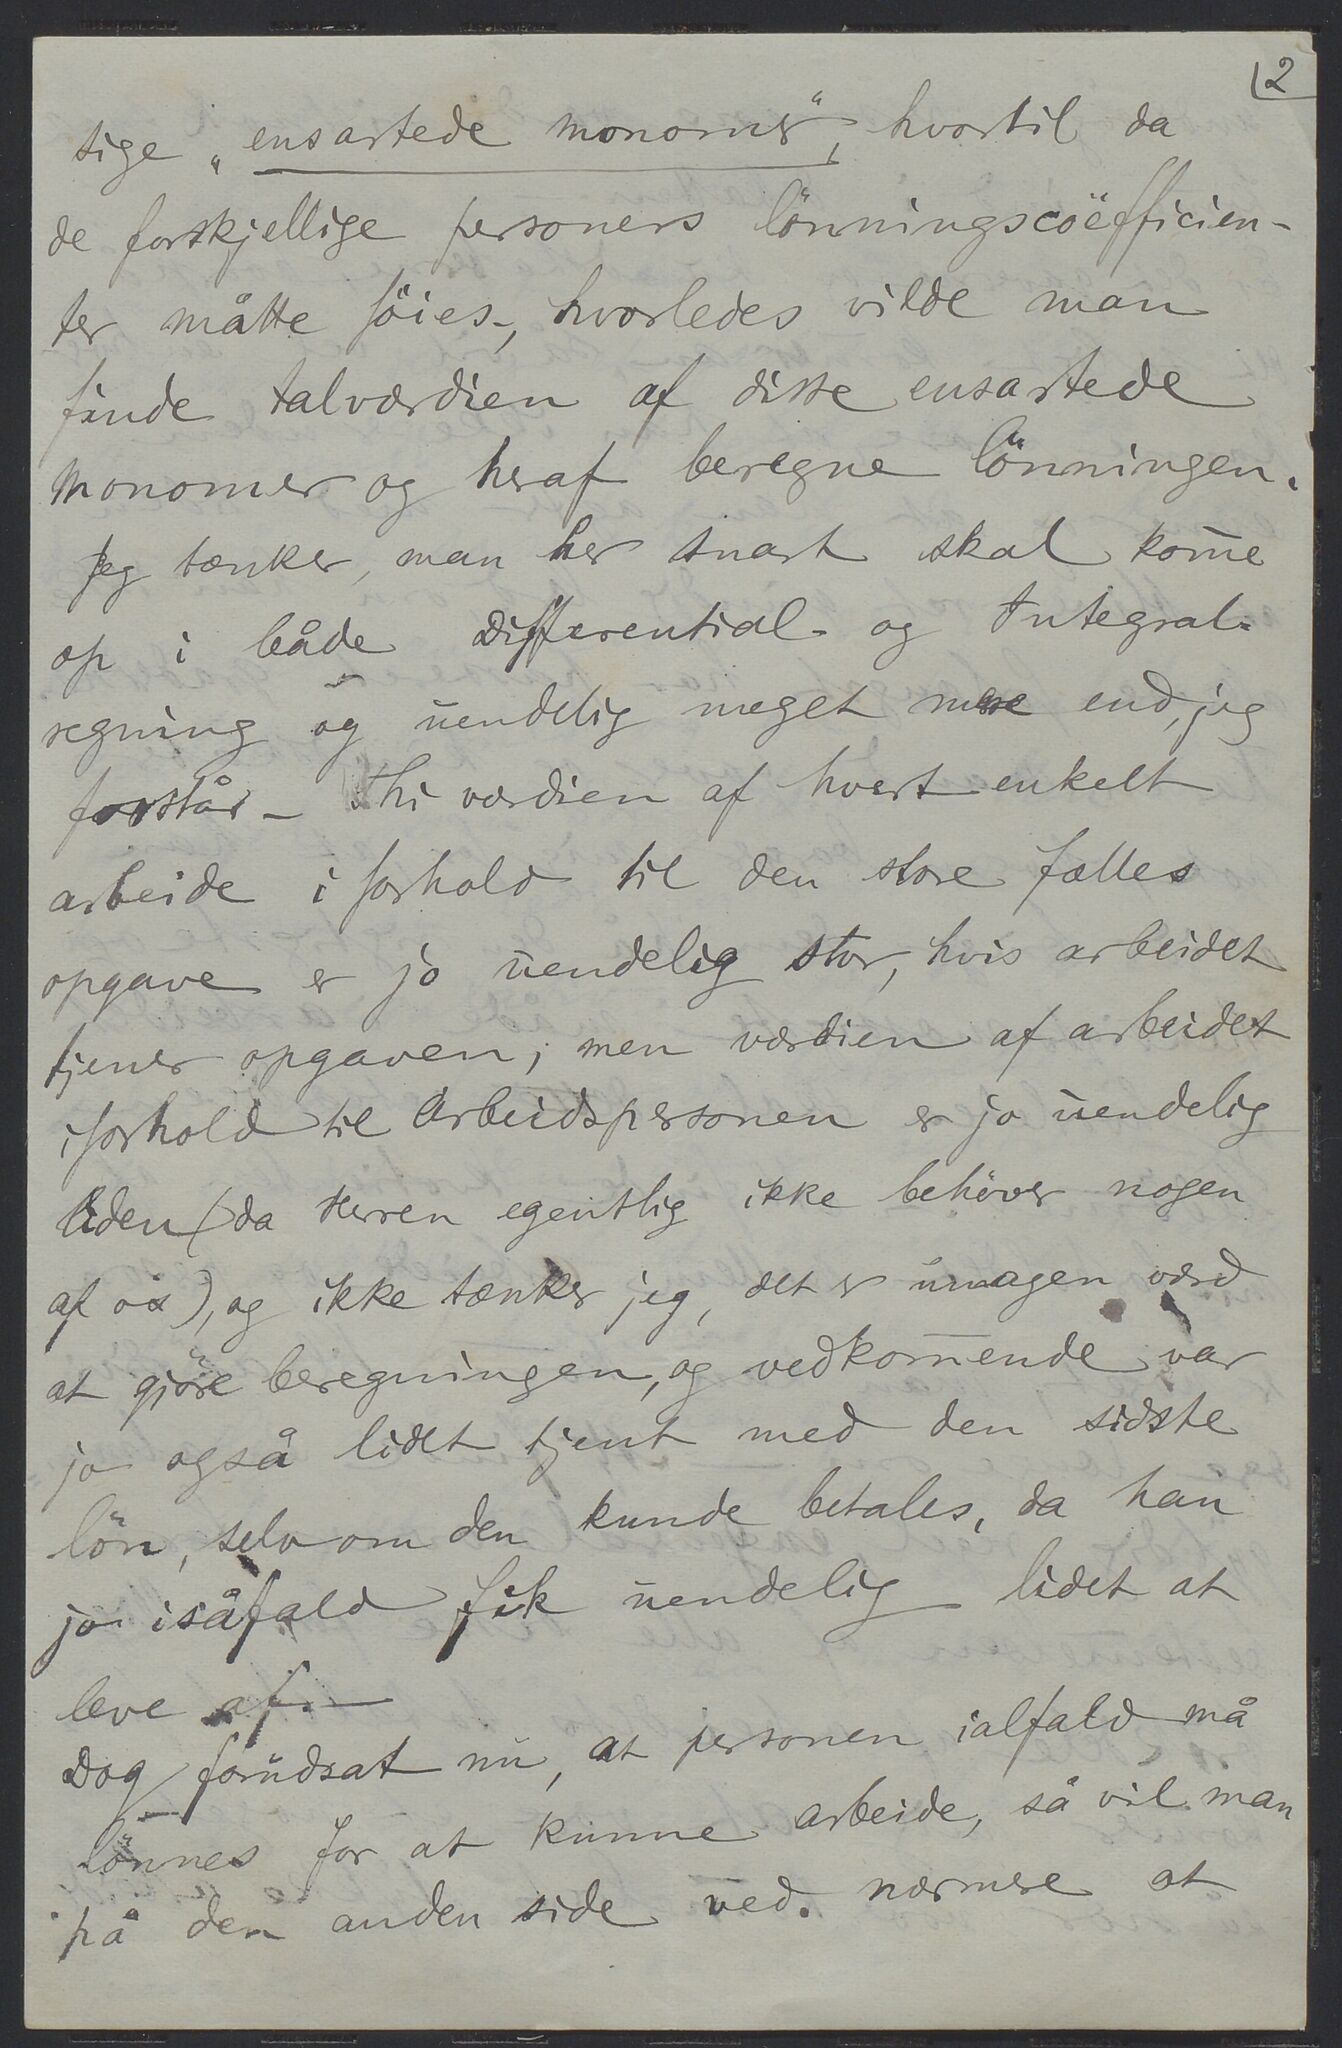 2
sige „ensartede monomer“, hvortil da
de forskjellige personers lönningscoëfficien-
ter måtte föies -, hvorledes vilde man
finde talværdien af disse ensartede
monomer og heraf beregne lönningen.
Jeg tænker, man her snart skal kom̄e
op i både Differential- og Integral-
regning og uendelig meget mere end, jeg
forstår - Thi værdien af hvert enkelt
arbeide i forhold til den store fælles
opgave er jo uendelig stor, hvis arbeidet
tjener opgaven; men værdien af arbeidet
iforhold til Arbeidspersonen er jo uendelig
liden (da Herren egentlig ikke behöver nogen
af os), og ikke tænker jeg, det er umagen værd
at gjöre beregningen, og vedkom̄ende var
jo også lidet tjent med den sidste
lön, selv om den kunde betales, da han
jo isåfald fik uendelig lidet at
leve af. —
Dog forudsat nu, at personen ialfald må
lönnes for at kunne arbeide, så vil man
på den anden side ved nærmere at